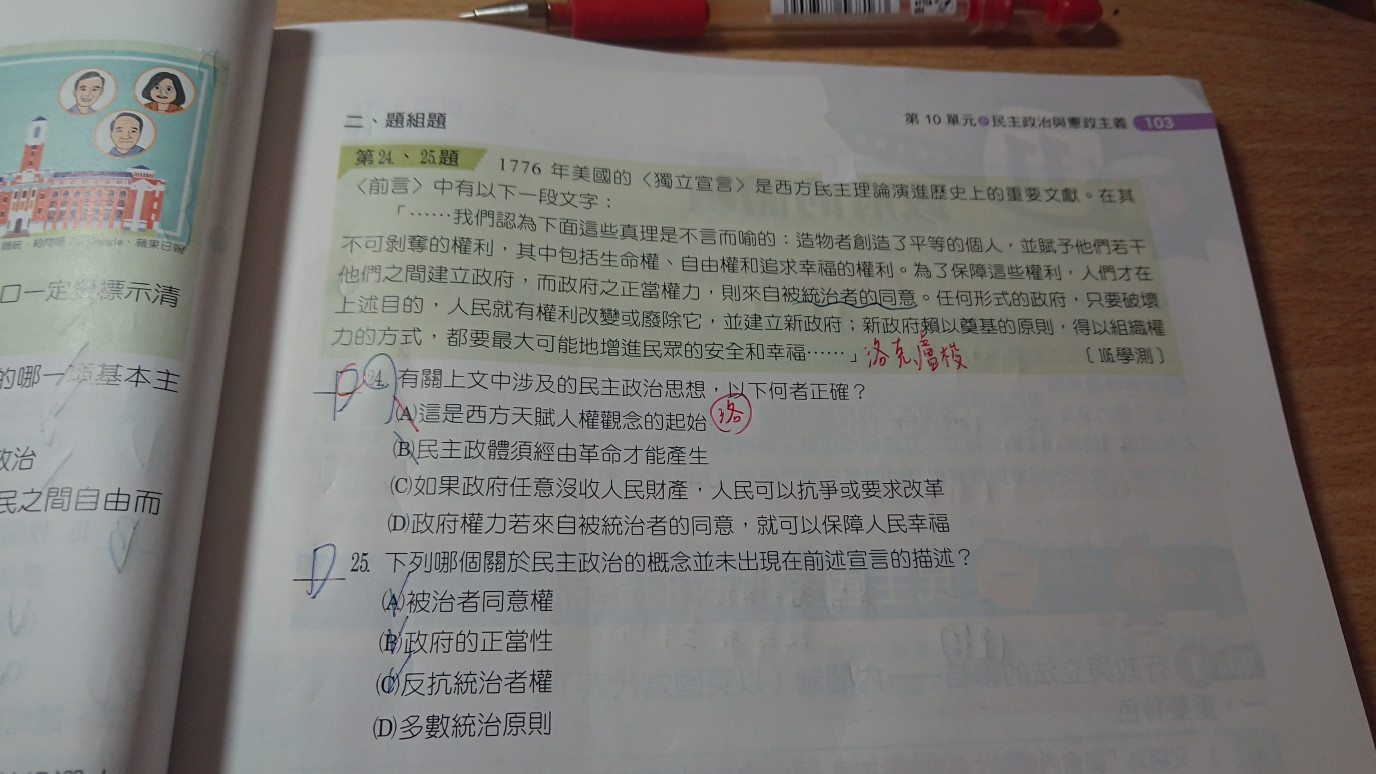 總統、鮑岡儒 Google、蘋果日報
口一定要標示清
的哪一項基本主
政治
民之間自由而
第 10 單元 民主政治與憲政主義 103
二、題組題
第24、25.題 1776 年美國的〈獨立宣言〉是西方民主理論演進歷史上的重要文獻。在其
〈前言〉中有以下一段文字：
「……我們認為下面這些真理是不言而喻的：造物者創造了平等的個人，並賦予他們若干
不可剝奪的權利，其中包括生命權、自由權和追求幸福的權利。為了保障這些權利，人們才在
他們之間建立政府，而政府之正當權力，則來自被統治者的同意。任何形式的政府，只要破壞
上述目的，人民就有權利改變或廢除它，並建立新政府；新政府賴以奠基的原則，得以組織權
力的方式，都要最大可能地增進民眾的安全和幸福……」洛克、盧梭 〔106.學測〕
D 24. 有關上文中涉及的民主政治思想，以下何者正確？
(A)這是西方天賦人權觀念的起始 洛
(B)民主政體須經由革命才能產生
(C)如果政府任意沒收人民財產，人民可以抗爭或要求改革
(D)政府權力若來自被統治者的同意，就可以保障人民幸福
D 25. 下列哪個關於民主政治的概念並未出現在前述宣言的描述？
(A)被治者同意權
(B)政府的正當性
(C)反抗統治者權
(D)多數統治原則